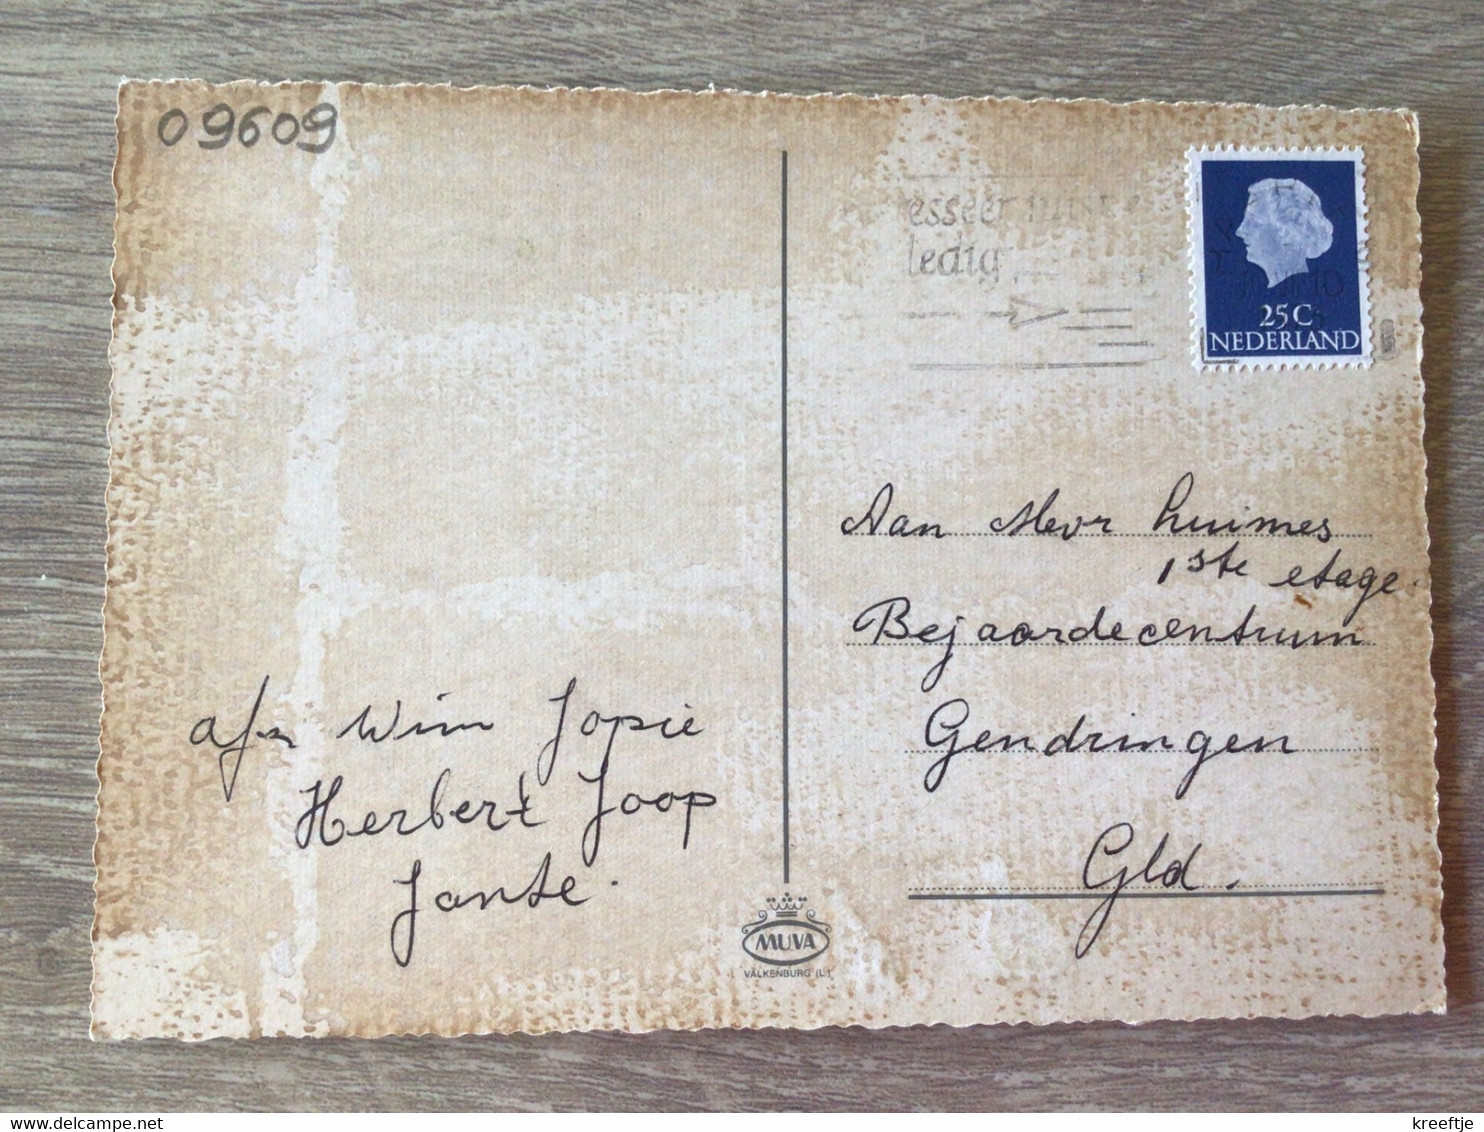 09609
esseer
ledig
25 C
NEDERLAND
Aan Mevr Huimes
1ste etage.
Bejaardecentrum
Gendringen
Gld.
afz Wim Jopie
Herbert Joop
Jante.
MUVA
VALKENBURG (L.)
delcampe.net
kreeftje